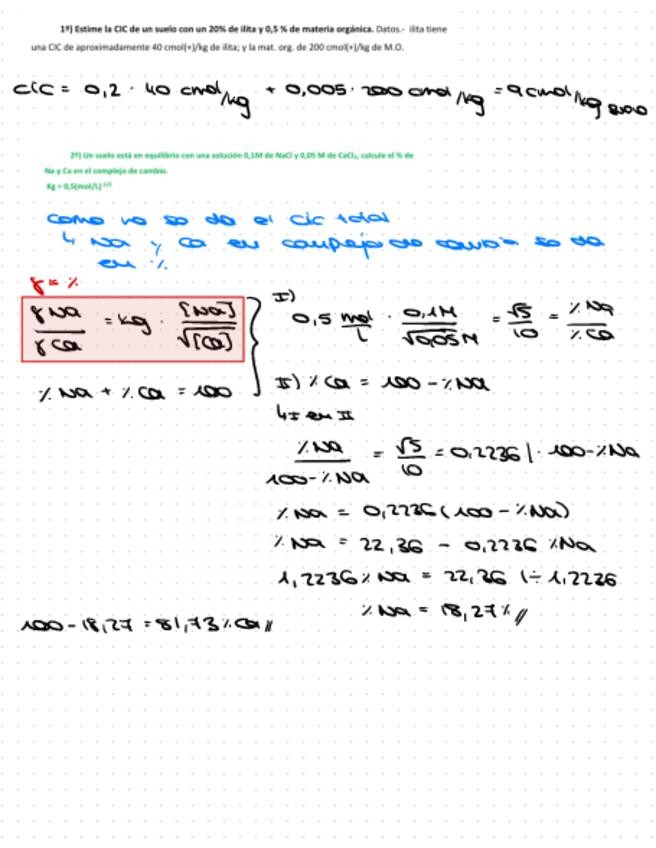 1º) Estime la CIC de un suelo con un 20% de ilita y 0,5 % de materia orgánica. Datos.- ilita tiene
una CIC de aproximadamente 40 cmol(+)/kg de ilita; y la mat. org. de 200 cmol(+)/kg de M.O.
CIC = 0,2 · 40 cmol/kg + 0,005 · 200 cmol/kg = 9 cmol/kg suelo
2º) Un suelo está en equilibrio con una solución 0,1M de NaCl y 0,05 M de CaCl₂, calcule el % de
Na y Ca en el complejo de cambio.
Kg = 0,5(mol/L)⁻¹/²
como no se da el cic total
↳ Na y Ca en complejo de cambio se da
en %
γ = %
γNa / γCa = kg · [Na] / √[Ca]
% Na + % Ca = 100
I)
0,5 mol/L · 0,1M / √0,05M = √5 / 10 = % Na / % Ca
II) % Ca = 100 - % Na
↳ I en II
% Na / 100 - % Na = √5 / 10 = 0,2236 | · 100 - % Na
% Na = 0,2236 (100 - % Na)
% Na = 22,36 - 0,2236 % Na
1,2236 % Na = 22,36 | ÷ 1,2236
% Na = 18,27% //
100 - 18,27 = 81,73 % Ca //